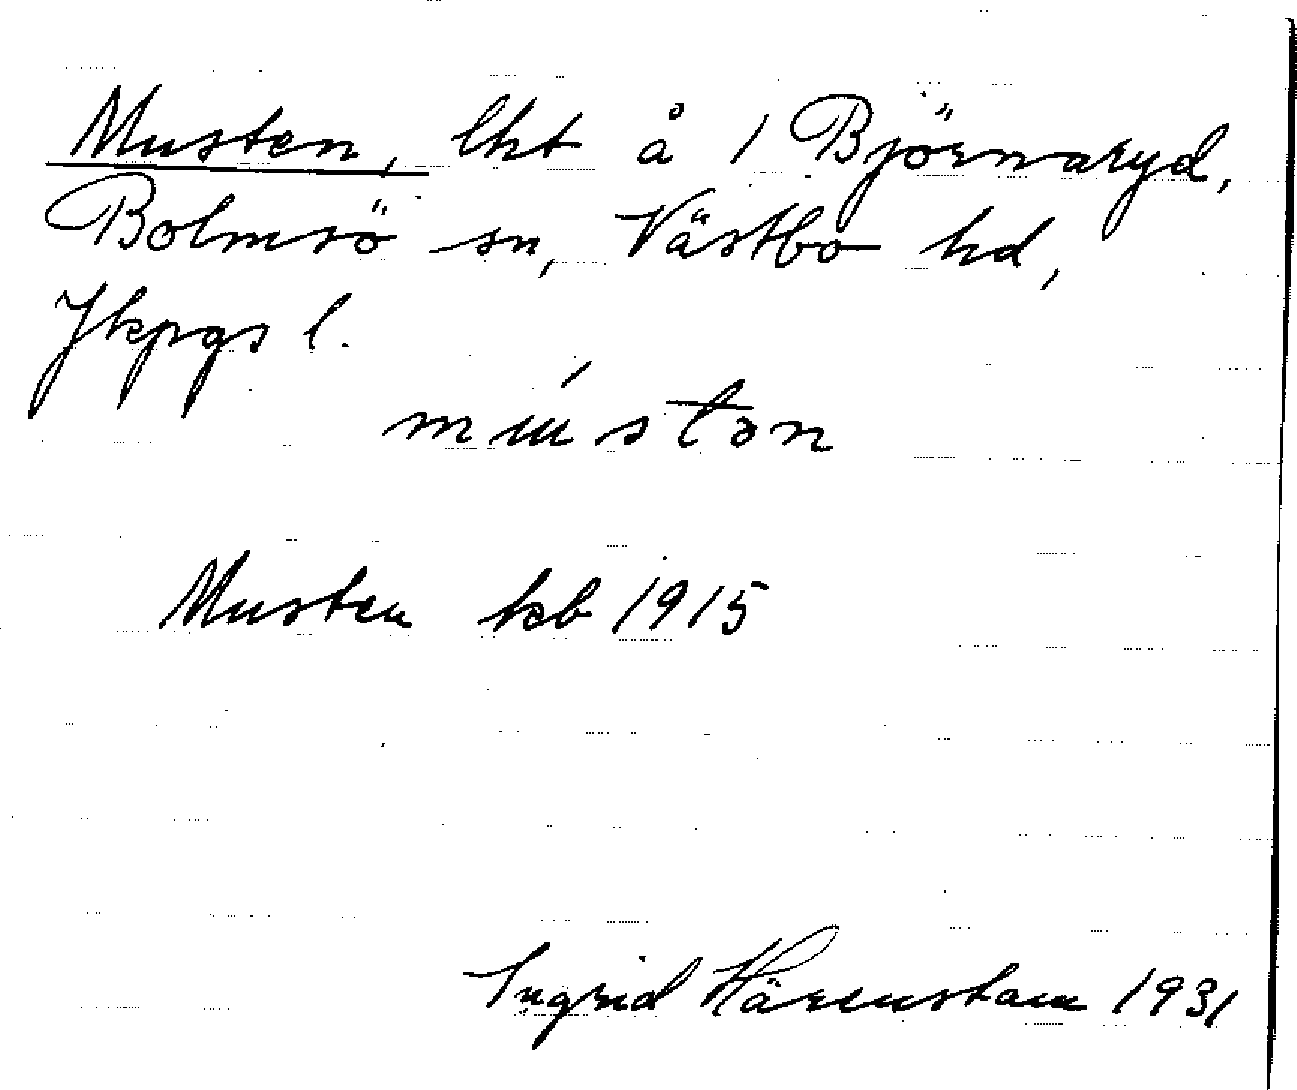 Musten, lht å 1 Björnaryd,
Bolmsö sn, Västbo hd,
Jkpgs l.
mústən
Musten kb 1915
Ingrid Härenstam 1931